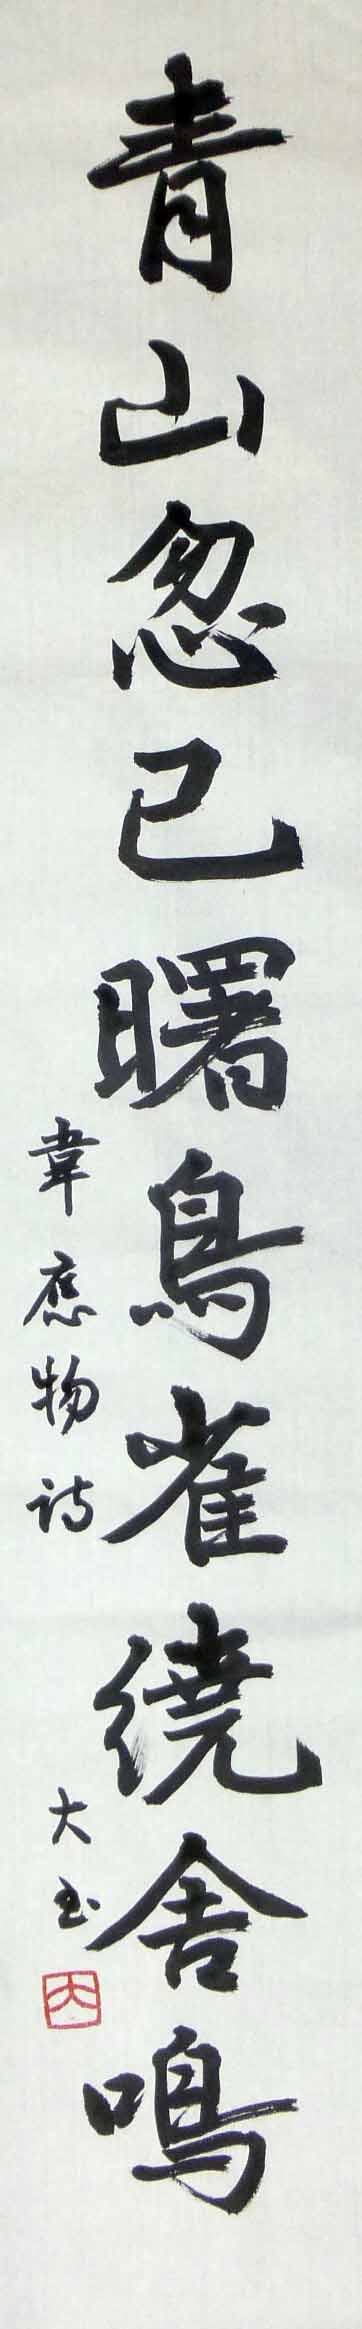 青山忽已曙鳥雀繞舍鳴
韋應物詩
大玉
大